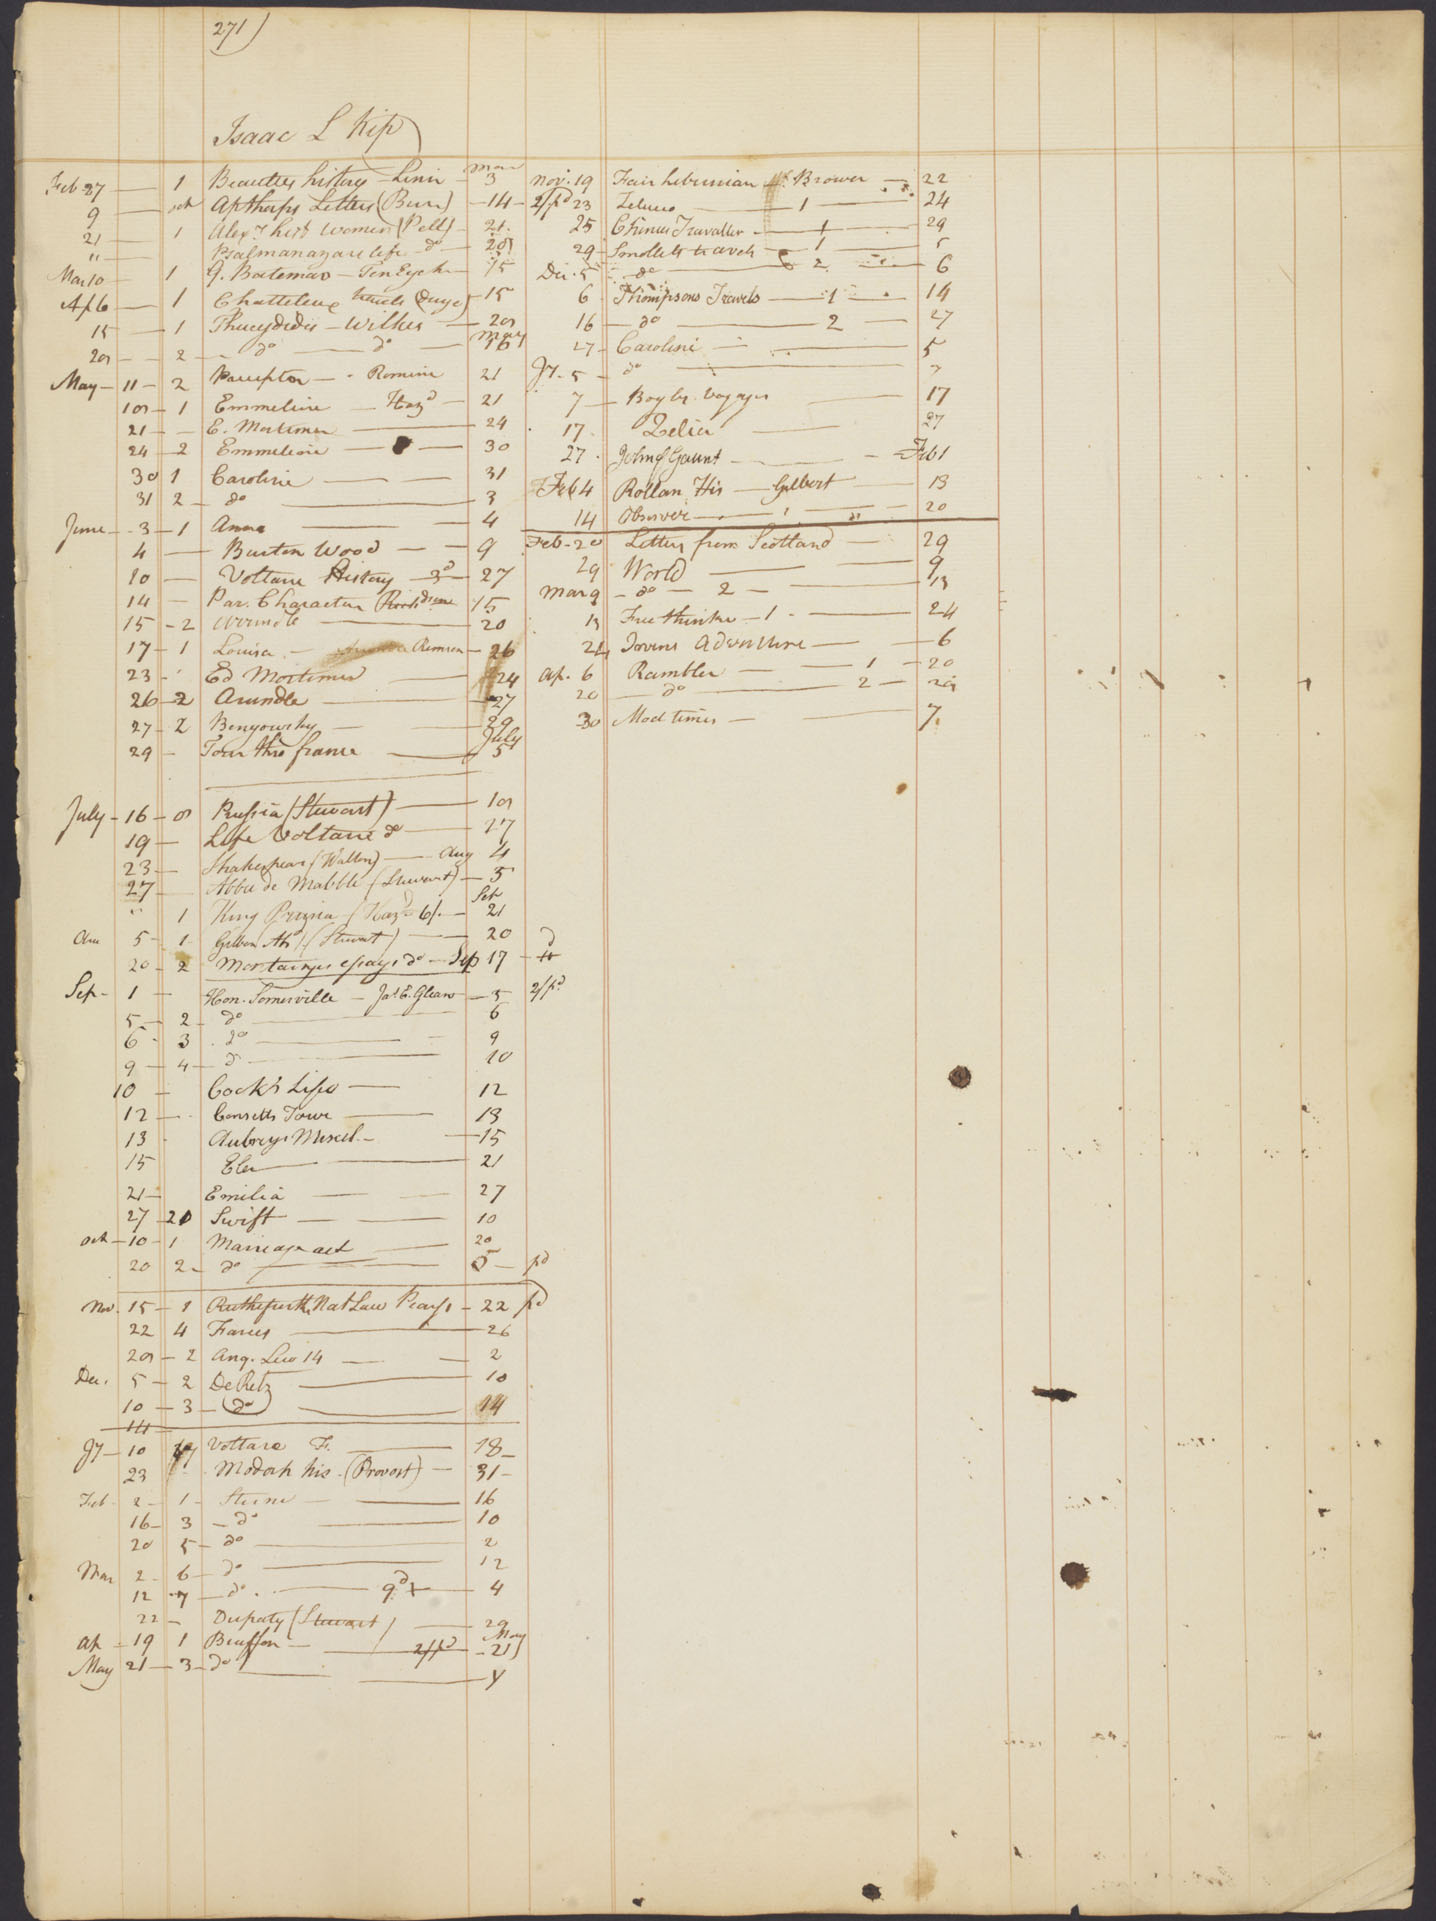 271)
Isaac L Kip
Feb 27 — 1 Beauties history — Linn — Mar 3
9 — oct Apthorps Letters (Burr) — 14 —
21 — 1 Alexrs hist women (Pell) — 21
" — Psalmanazars life do — 28
Mar 10 — 1 G. Bateman — Ten Eyck — 15
Ap 6 — 1 Chatteleux travels (Duye) — 15
15 — 1 Thucydides — Wilkes — 20
20 — 2 — do — do — May 16
May — 11 — 2 — Romein 21
10 — 1 Emmeline — Hazd — 21
21 — E. Mortimer — 24
24 — 2 Emmeline — 30
30 1 Caroline — 31
31 2 — do — 3
June — 3 — 1 Anna — 4
4 — Burton Wood — 9
10 — Voltaire History 3d — 27
14 — Par. Character 15
15 — 2 Arundle — 20
17 — 1 Louisa — Remsen — 26
23 — Ed Mortimer — 24
26 — 2 Arundle — 27
27 — 2 Benyowsky — 29
29 — Tour thro france — July 5
July — 16 — 8 Prussia (Stewart) — 19
19 — Life Voltaire do — 27
23 — Shakespear (Walton) — Aug 4
27 — Abbe de Mabble (Stewart) — 5
" 1 King Prussia (Hazd 6/. — Sep 21
5 — 1 Gibbon (Stewart) — 20
20 — 2 Montaignes essays do — Sep 17
Sep — 1 — Hon. Somerville — Jas E. Glean — 5 2/pd
5 — 2 — do — 6
6 — 3 do — 9
9 — 4 — do — 10
10 — Cook's Life — 12
12 — Consetts Tour — 13
13 Aubreys Miscel. — 15
15 — 21
21 — Emilia — 27
27 Swift — 10
Oct — 10 — 1 Marriage act — 20
20 2 — do — 5 — pd
Nov. 15 — 1 Rutherfurth Nat Law — 22 pd
22 4 — 26
20 — 2 Anq. Lew 14 — 2
Dec. 5 — 2 De Retz — 10
10 — 3 — do — 14
14
Jy — 10 Voltare — 18 —
23 his (Provost) — 31 —
Feb 2 — 1 — Sterne — 16
16 — 3 — do — 10
20 5 — do — 2
Mar 2 — 6 — do — 12
12 — 7 — do — 4
22 — Dupaty (Stewart) — 29
Ap — 19 1 Buffon — 2/pd May — 21
May 21 — 3 — do —
Nov. 19 Fair hibernian — Brower — 22
2/pd 23 Zeluco — 1 — 24
25 Chinese Traveller — 1 — 29
29 — Smolletts travels — 1 — 5
Dec. 5 — do — 2 — 6
6 Thompsons Travels — 1 — 14
16 — do — 2 — 27
27 — Caroline — 5
Jy. 5 — do — 7
7 — voyages — 17
17 Zelia — 27
27 John of Gaunt — Feb 1
Feb 4 Rollan His — Gilbert — 13
14 Observer — 1 — 20
Feb — 20 Letters from Scotland — 29
29 World — 9
Mar 9 — do — 2 — 13
13 Free thinker — 1 — 24
24 Adventure — 6
Ap. 6 Rambler — 1 — 20
20 — do — 2 — 29
30 Mod times — 7